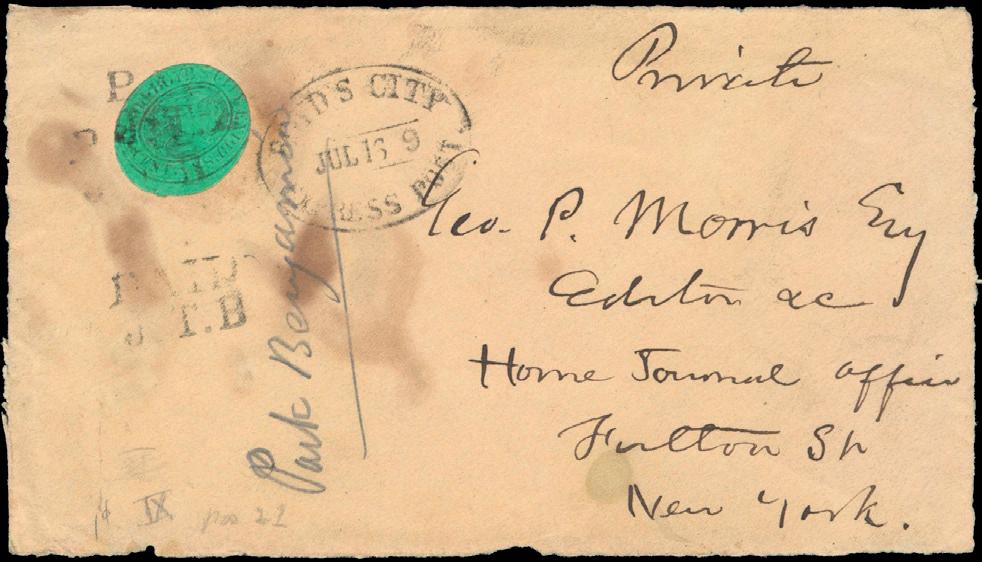 Private
BOYD'S CITY
JUL 16 9
EXPRESS POST
PAID
J.T.B
Geo. P. Morris Esq
Editor &c
Home Journal office
Fulton St
New York.
Park Benjamin
IX
pos 22